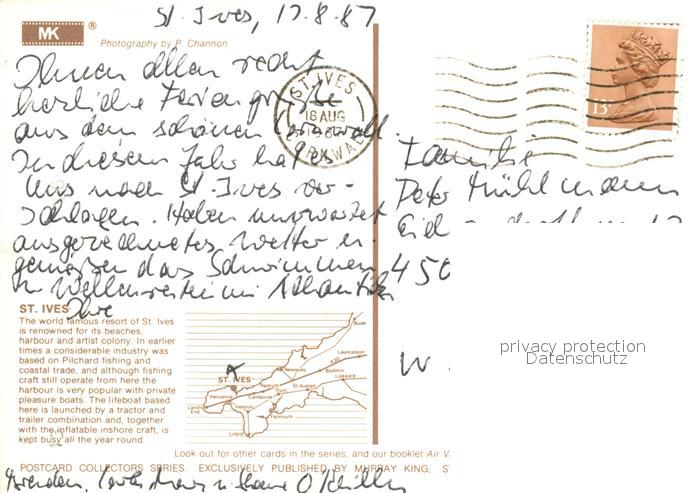 St. Ives, 17.8.87
MK ®
Photography by P. Channon
Ihnen allen recht
herzliche Feriengrüße
aus dem schönen Cornwall.
In diesem Jahr hat es
uns nach St. Ives ver-
schlagen. Haben unerwartet
ausgezeichnetes Wetter u.
geniessen das Schwimmen
u. Wellenreiten im Atlantik
Ihre
ST. IVES
18 AUG
CORNWALL
13
Familie
Peter Mühlmann
450
W.
privacy protection
Datenschutz
ST. IVES
The world famous resort of St. Ives
is renowned for its beaches,
harbour and artist colony. In earlier
times a considerable industry was
based on Pilchard fishing and
coastal trade, and although fishing
craft still operate from here the
harbour is very popular with private
pleasure boats. The lifeboat based
here is launched by a tractor and
trailer combination and, together
with the inflatable inshore craft, is
kept busy all the year round.
Bude
Launceston
A30
Newquay
Bodmin
Liskeard
ST. IVES
Redruth
Truro
St. Austell
Penzance
Camborne
Land's
End
Helston
Falmouth
Lizard
Look out for other cards in the series, and our booklet Air V
POSTCARD COLLECTORS SERIES. EXCLUSIVELY PUBLISHED BY MURRAY KING, ST